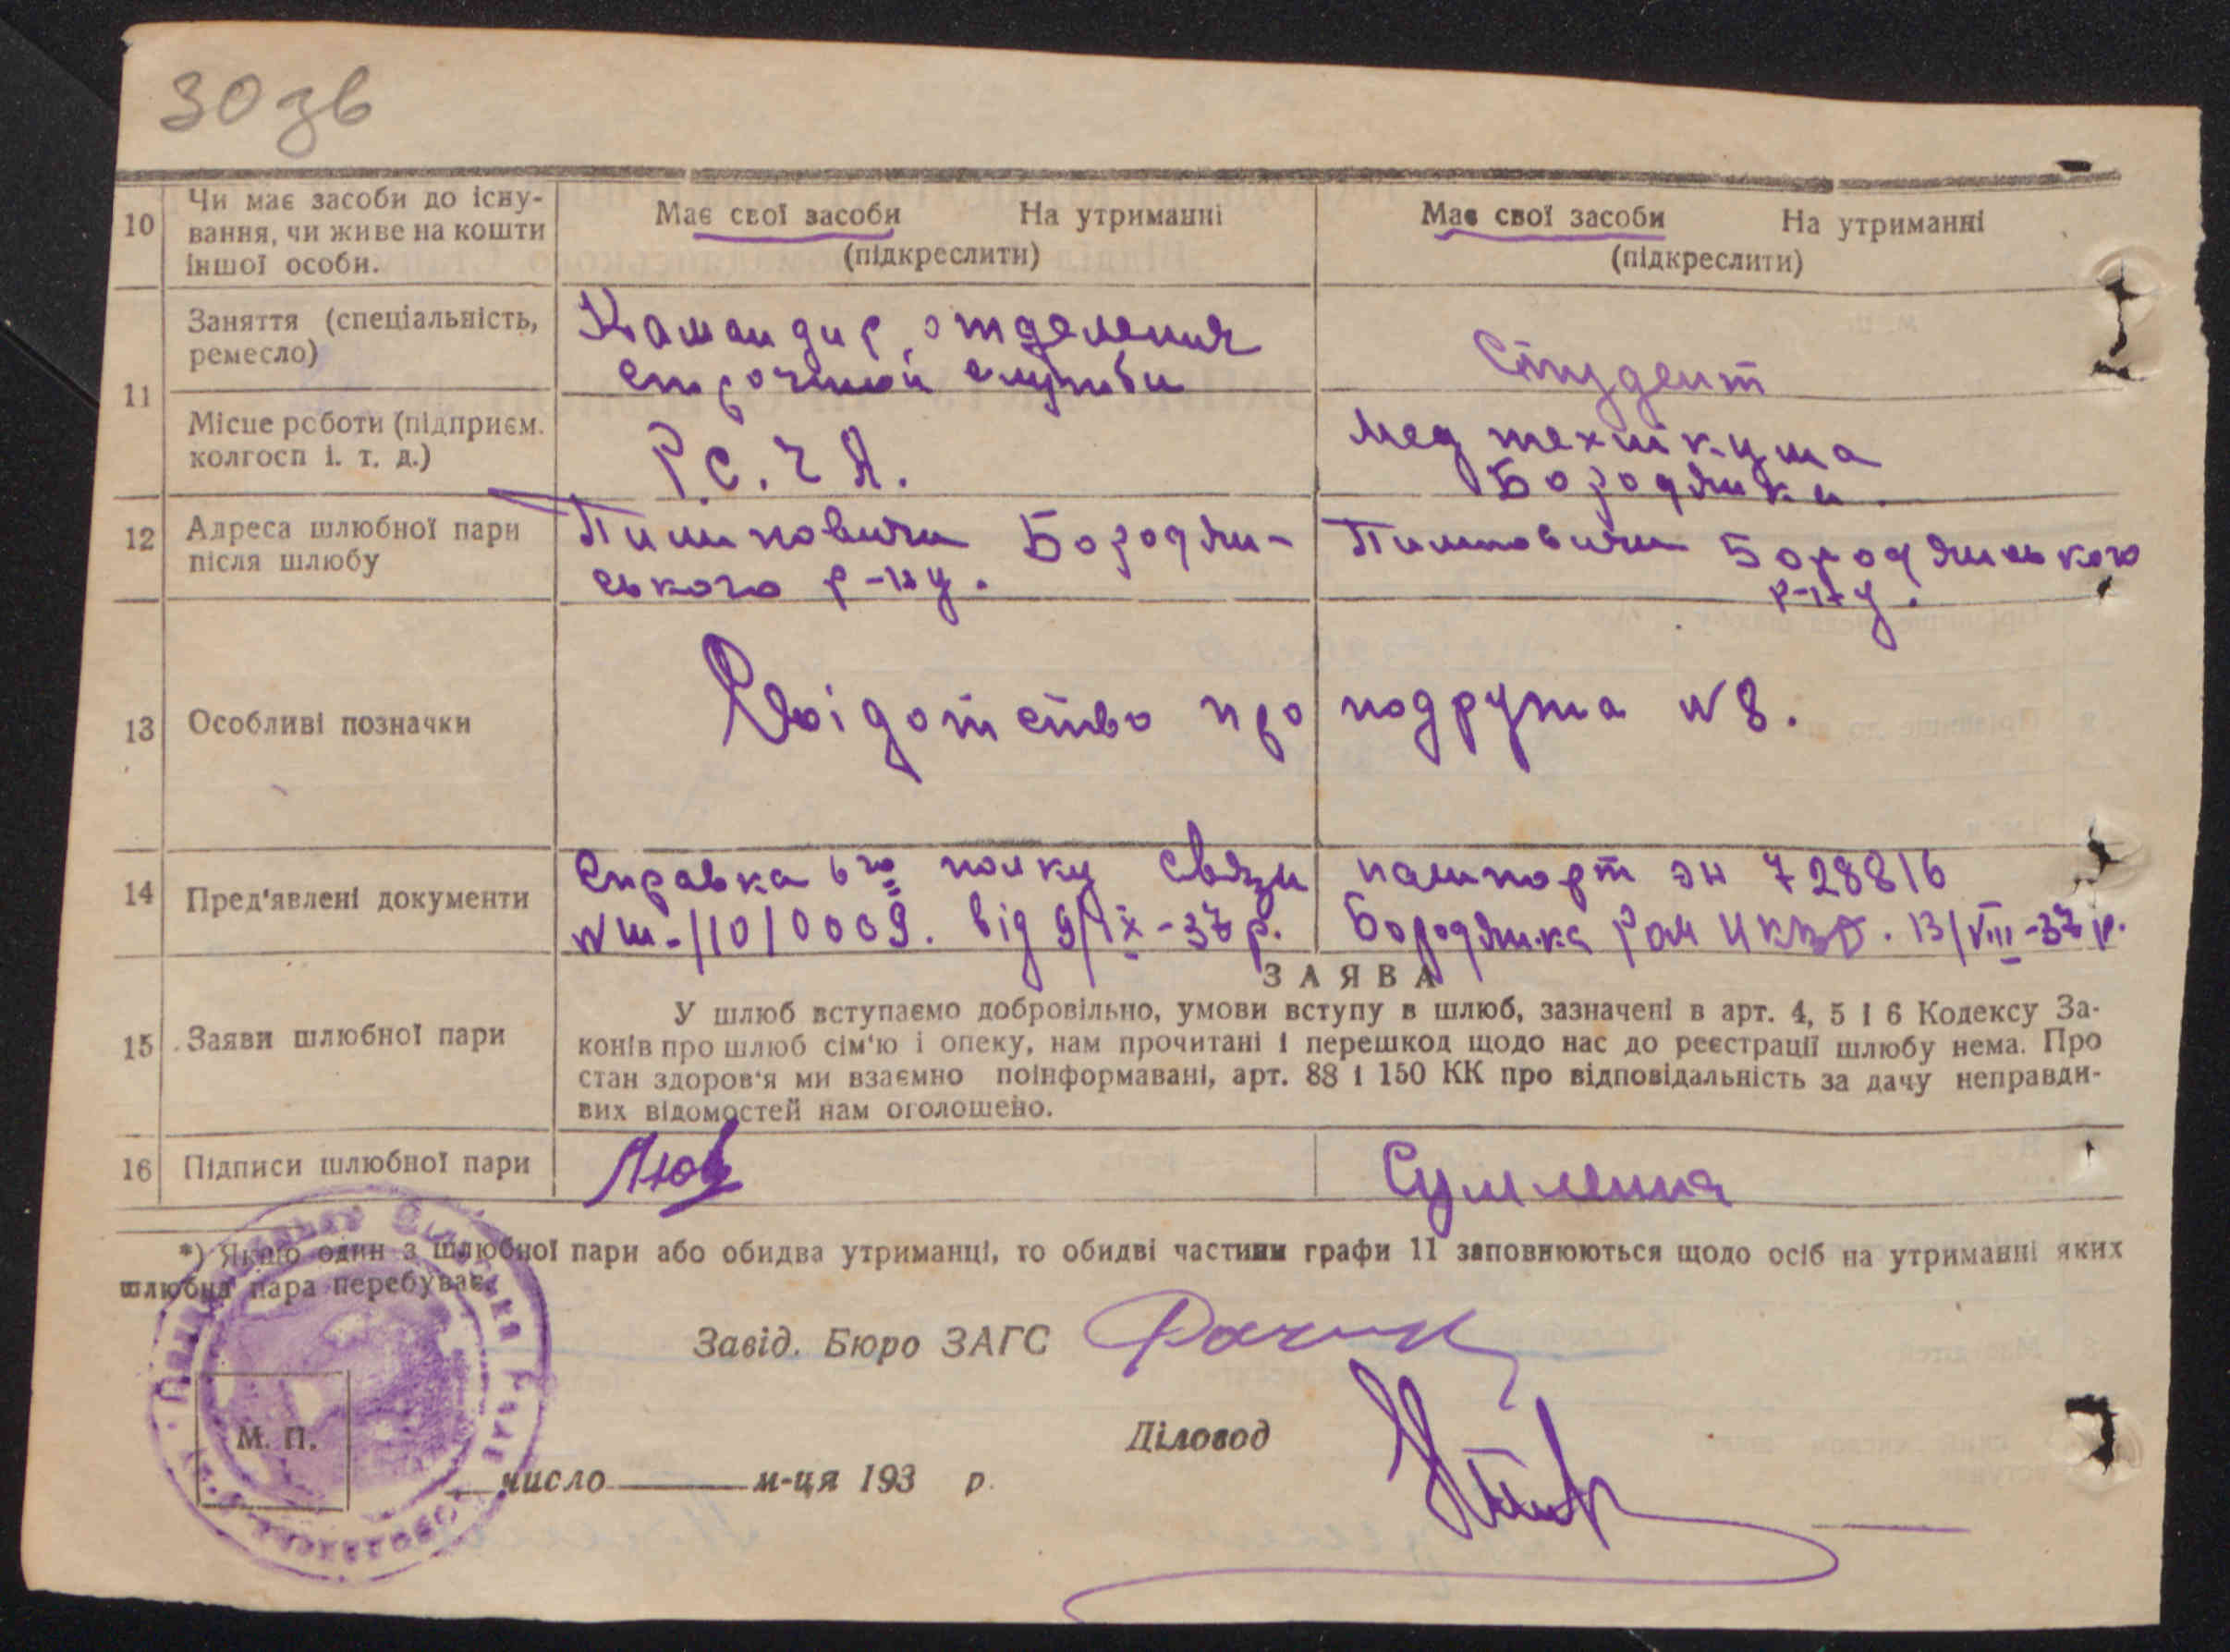 30 зв
10 Чи має засоби до існу-
вання, чи живе на кошти
іншої особи.
Має свої засоби На утриманні
(підкреслити)
Має свої засоби На утриманні
(підкреслити)
11 Заняття (спеціальність,
ремесло)
Командир отделения
строчной служби
Студент
Місце роботи (підприєм.
колгосп і. т. д.)
Р.С.ЧА.
мед технікума
Бородянки.
12 Адреса шлюбної пари
після шлюбу
Пилиповичи Бородян-
ського р-ну.
Пилиповичи Бородянського
р-ну.
13 Особливі позначки
Свідотство про подружа № 8.
14 Пред'явлені документи
Справка 6го полку Связи
№ш-11010009. від 9/ІХ-37р.
пашпорт эн 728816
Бородянка Рай НКВД. 13/VIII-37р.
15 Заяви шлюбної пари
ЗАЯВА
У шлюб вступаємо добровільно, умови вступу в шлюб, зазначені в арт. 4, 5 і 6 Кодексу За-
конів про шлюб сім'ю і опеку, нам прочитані і перешкод щодо нас до реєстрації шлюбу нема. Про
стан здоров'я ми взаємно поінформавані, арт. 88 і 150 КК про відповідальність за дачу неправди-
вих відомостей нам оголошено.
16 Підписи шлюбної пари
*) Якщо один з шлюбної пари або обидва утриманці, то обидві частини графи 11 заповнюються щодо осіб на утриманні яких
шлюбна пара перебуває.
Завід. Бюро ЗАГС
Діловод
М. П.
число м-ця 193 р.